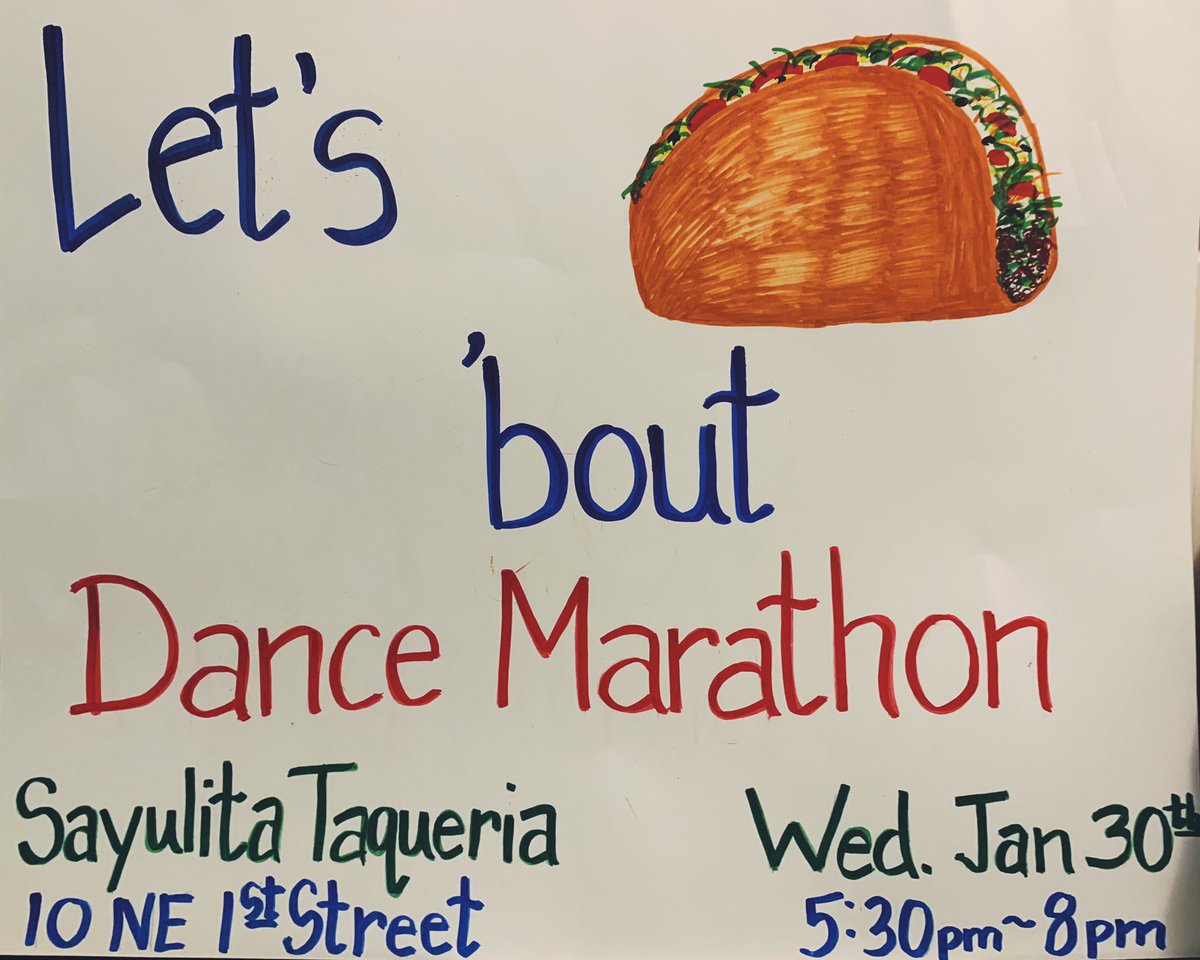 Let's
'bout
Dance Marathon
Sayulita Taqueria
10 NE 1st Street
Wed. Jan 30th
5:30pm~8pm